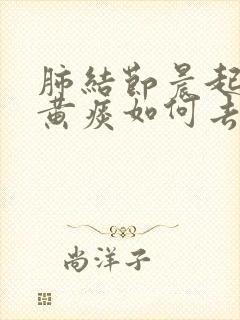 肺結節晨起
黄痰如何去
尚洋子